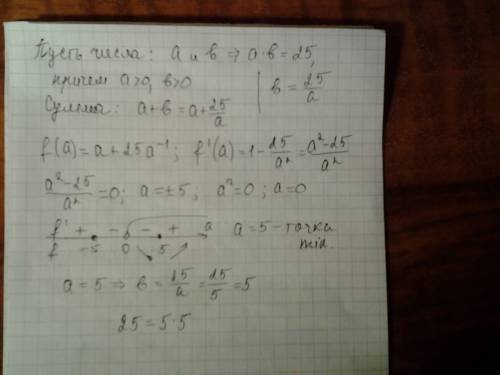 Пусть числа: a и b ⇒ a·b = 25,
причем a>0, b>0 | b = 25/a
Сумма: a+b = a + 25/a
f(a) = a + 25a⁻¹; f'(a) = 1 - 25/a² = a²-25/a²
a²-25/a² = 0; a = ±5; a² = 0; a = 0
f' + - - + a a = 5 - точка
f -5 0 5 min.
a = 5 ⇒ b = 25/a = 25/5 = 5
25 = 5·5